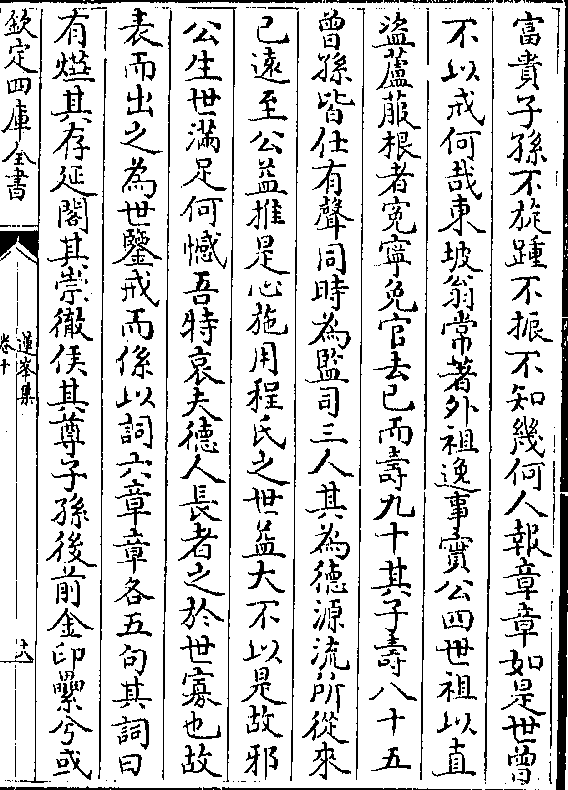 富貴子孫不旋踵不振不知幾何人報章章如是世曾
不以戒何哉東坡翁常著外祖逸事實公四世祖以直
盜蘆菔根者寃寧免官去已而壽九十其子壽八十五
曾孫皆仕有聲同時為監司三人其為德源流所從來
已遠至公益推是心施用程氏之世益大不以是故邪
公生世滿足何憾吾特哀夫德人長者之於世寡也故
表而出之為世鑒戒而係以詞六章章各五句其詞曰
有爀其存延閣其崇徹侯其尊子孫後前金印纍兮或
欽定四庫全書
蓮峯集
卷十
十八